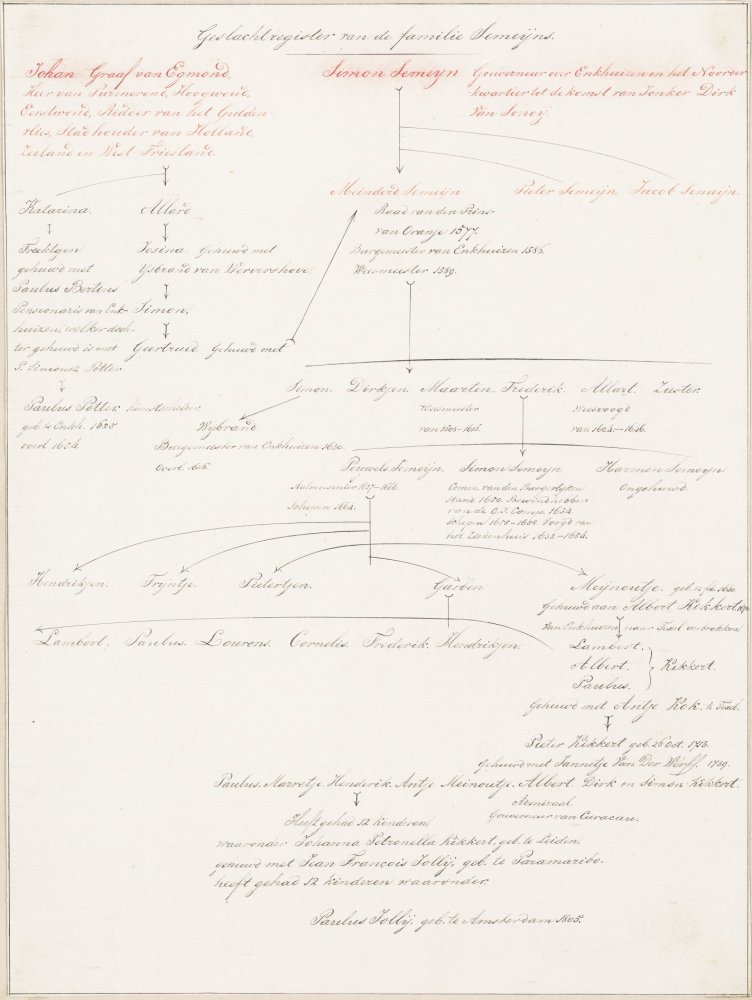 Geslachtregister van de familie Semeyns.
Johan Graaf van Egmond,
Heer van Purmerend, Hoogwoud,
Eenstwoud, Ridder van het Gulden-
vlies, Stadhouder van Holland,
Zeeland en West-Friesland.
Simon Semeyn
Gouverneur over Enkhuizen en het Noorder
kwartier tot de komst van Jonker Dirk
Van Sonoij.
Meinderd Semeijn
Pieter Semeijn.
Jacob Semeijn.
Raad van den Prins
van Oranje 1577.
Burgemeester van Enkhuizen 1586.
Weesmeester 1589.
Katarina.
Allard
Freektgen
gehuwd met
Paulus Bertens
Pensionaris van Enk-
huizen, welker doch-
ter gehuwd is met
P. Simonsz Potter
Josina. Gehuwd met
IJsbrand van Wervershove.
Simon.
Geertruid Gehuwd met
Paulus Potter kunstschilder.
geb. te Enkh. 1625
overl. 1654.
Simon. Dirkjen. Maarten. Frederik. Allart. Zuster.
Weesmeester
van 1603-1615.
Weesvoogd
van 1624-1636.
Wijbrand.
Burgemeester van Enkhuizen 1650.
Overl.
Pouwels Semeijn.
1657-1660
Schepen 1664.
Simon Semeijn.
Comm. van den Burgerlijken
Stand 1650. Bewindhebber
van de O.I. Comp. 1654.
Schepen 1655-1658. Voogd van
het Ziekenhuis 1652-1654.
Harmen Semeijn
Ongehuwd.
Hendrikjen. Trijntje. Pietertjen. Garben.
Meijnoutje. geb.
Gehuwd aan Albert Kikkert
Van Enkhuizen naar Texel vertrokken.
Lambert. Paulus. Lourens. Cornelis. Frederik. Hendrikjen.
Lambert.
Albert. Kikkert.
Paulus.
Gehuwd met Antje Kok. te Texel.
Pieter Kikkert geb. 26 Oct. 1713.
Gehuwd met Jannetje Van Der Werff. 1739.
Paulus. Marretje. Henderik. Antje. Meinoutje. Albert. Dirk en Simon Kikkert.
Admiraal
Gouverneur van Curacau.
Heeft gehad 12 kinderen,
waaronder Johanna Petronella Kikkert, geb. te Leiden.
gehuwd met Jean François Jollij, geb. te Paramaribo.
heeft gehad 12 kinderen waaronder.
Paulus Jollij. geb. te Amsterdam 1805.